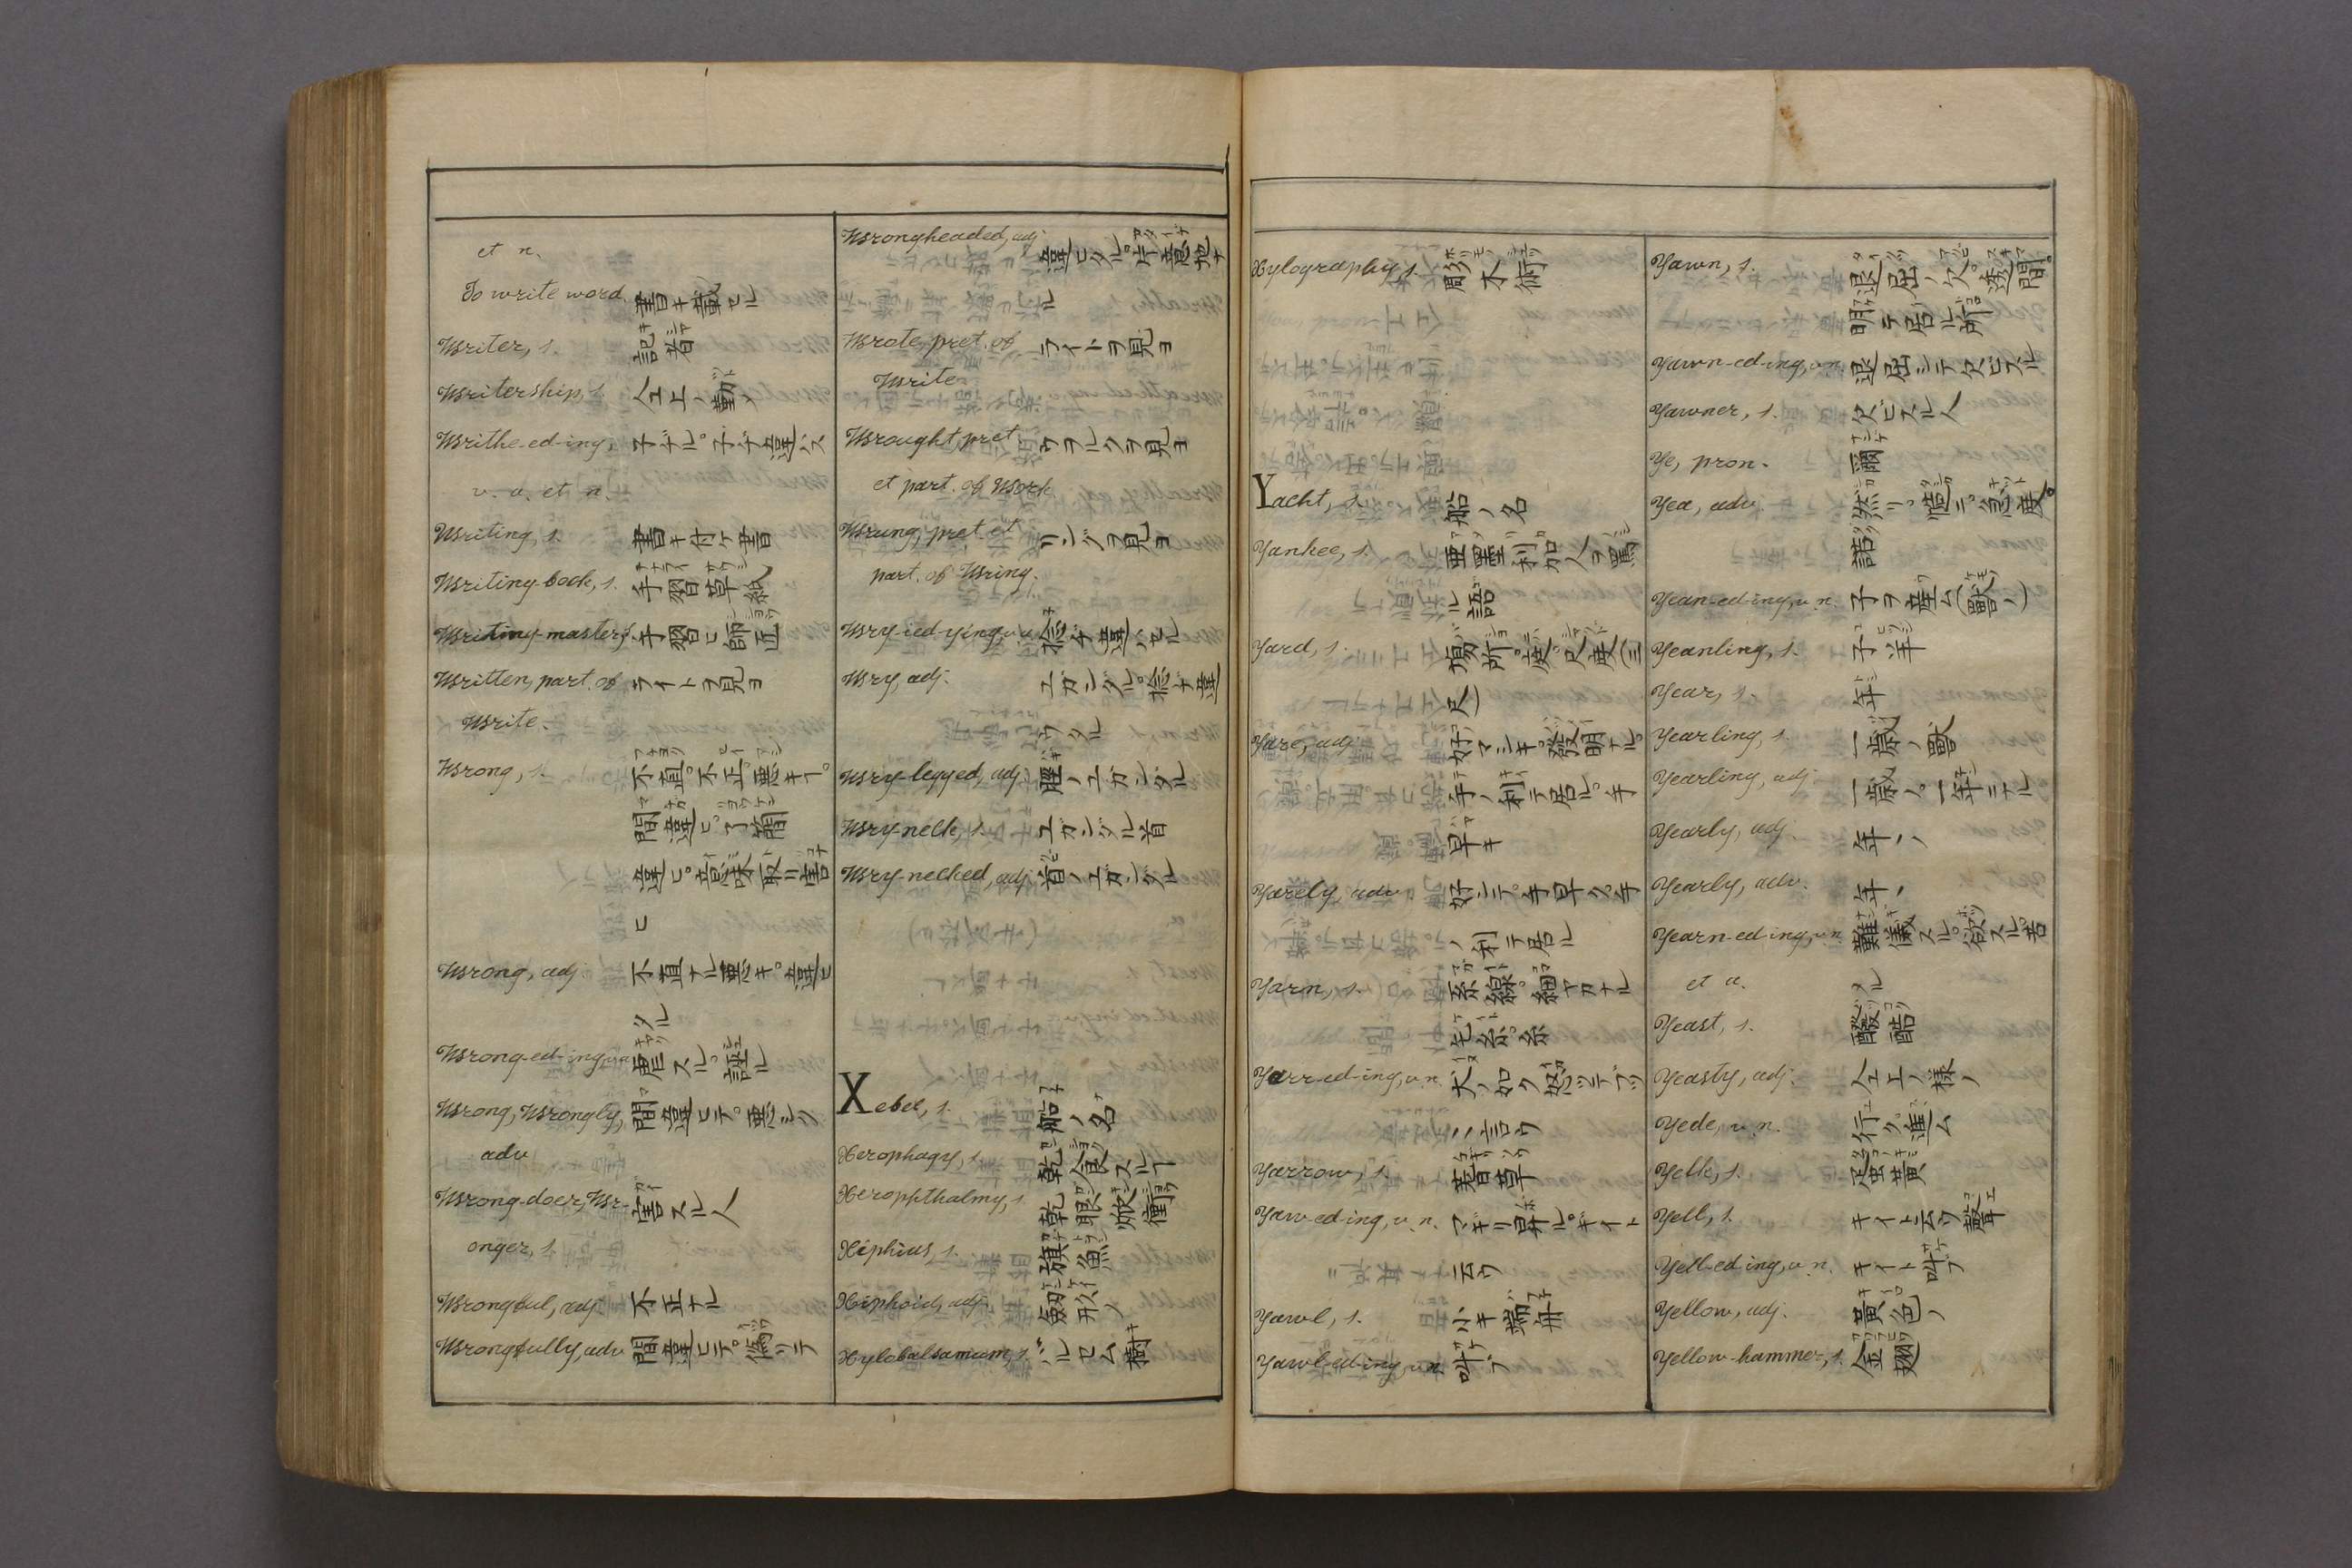 et n.
To write word. 書キ載セル
Writer, s. 記者
Writership, s. 仝上ノ勤
Writhe-ed-ing, 子ヂル。子ヂ違ハス
v. a. et n.
Writing, s. 書キ付ケ書
Writing-book, s. 手習草紙
Writing-master, s. 手習ヒ師匠
Written, part. of ライトヲ見ヨ
Write.
Wrong, s. 不直。不正。悪キヿ。
間違ヒ。了簡
違ヒ。意味取リ害
ヒ
Wrong, adj. 不直ナル悪キ。違ヒ
タル
Wrong-ed-ing, v.a. 虐スル。誣ル
Wrong, Wrongly, 間違ヒテ。悪シク
adv
Wrong-doer, Wr- 害スル人
onger, s.
Wrongful, adj. 不正ナル
Wrongfully, adv 間違ヒテ。偽ツテ
Wrongheaded, adj. 違ヒタル。片意地ナ
ル
Wrote, pret. of ライトヲ見ヨ
Write
Wrought, pret. ワヲルクヲ見ヨ
et part. of Work
Wrung, pret. et リングヲ見ヨ
part. of Wring.
Wry-ied-ying, v.a. 捻ヂ違ハセル
Wry, adj. ユガンダル。捻ヂ違
ワタル
Wry-legged, adj. 脛ノユガンダル
Wry-neck, s. ユガンダル首
Wry-necked, adj. 首ノユガンダル
Xebec, s. 船ノ名
Xerophagy, s. 乾食スルヿ
Xerophthalmy, s. 乾眼焮衝
Xiphius, s. 旗魚
Xiphoid, adj. 劔形ノ
Xylobalsamum, s. バルセム樹
Xylography, s. 彫木術
Yacht, s. 船ノ名
Yankee, s. 亜墨利加人ヲ罵
ル語
Yard, s. 場所。庭。尺度(三
尺)
Yare, adj. 好マシキ。發明ナル。
手ノ利テ居ル。手
早キ
Yarely, adv. 好シテ。手早ク。手
ノ利テ居ル
Yarn, s. 糸線。細ヤカナル
毛糸。糸
Yarr-ed-ing, v.n. 犬ノ如ク怒ツテブツ
〱言ウ
Yarrow, s. 蓍草
Yaw-ed-ing, v.n. マギリ昇ル。キイト
云ウ
Yawl, s. 小キ端舟
Yawl-ed-ing, v.n. 叫ブ
Yawn, s. 退屈ノ欠。透間。
明テ居ル所
Yawn-ed-ing, v.n. 退屈シテ欠ビスル
Yawner, s. 欠ビスル人
Ye, pron. 爾
Yea, adv. 然リ。慥ニ。急度。
諾
Yean-ed-ing, v.n. 子ヲ産ム(獸ノ)
Yeanling, s. 子羊
Year, s. 年
Yearling, s. 一歳ノ獸
Yearling, adj. 一歳ノ。一年ニナル
Yearly, adj. 年〻ノ
Yearly, adv. 年〻
Yearn-ed-ing, v.n. 難儀スル。欲スル。者
et a. タル
Yeast, s. 醱酷
Yeasty, adj. 仝上ノ様ノ
Yede, v.n. 行ク。進ム
Yelk, s. 蛋黄
Yell, s. キイト云ウ聲
Yell-ed-ing, v.n. キイト叫ブ
Yellow, adj. 黄色ノ
Yellow-hammer, s. 金翅